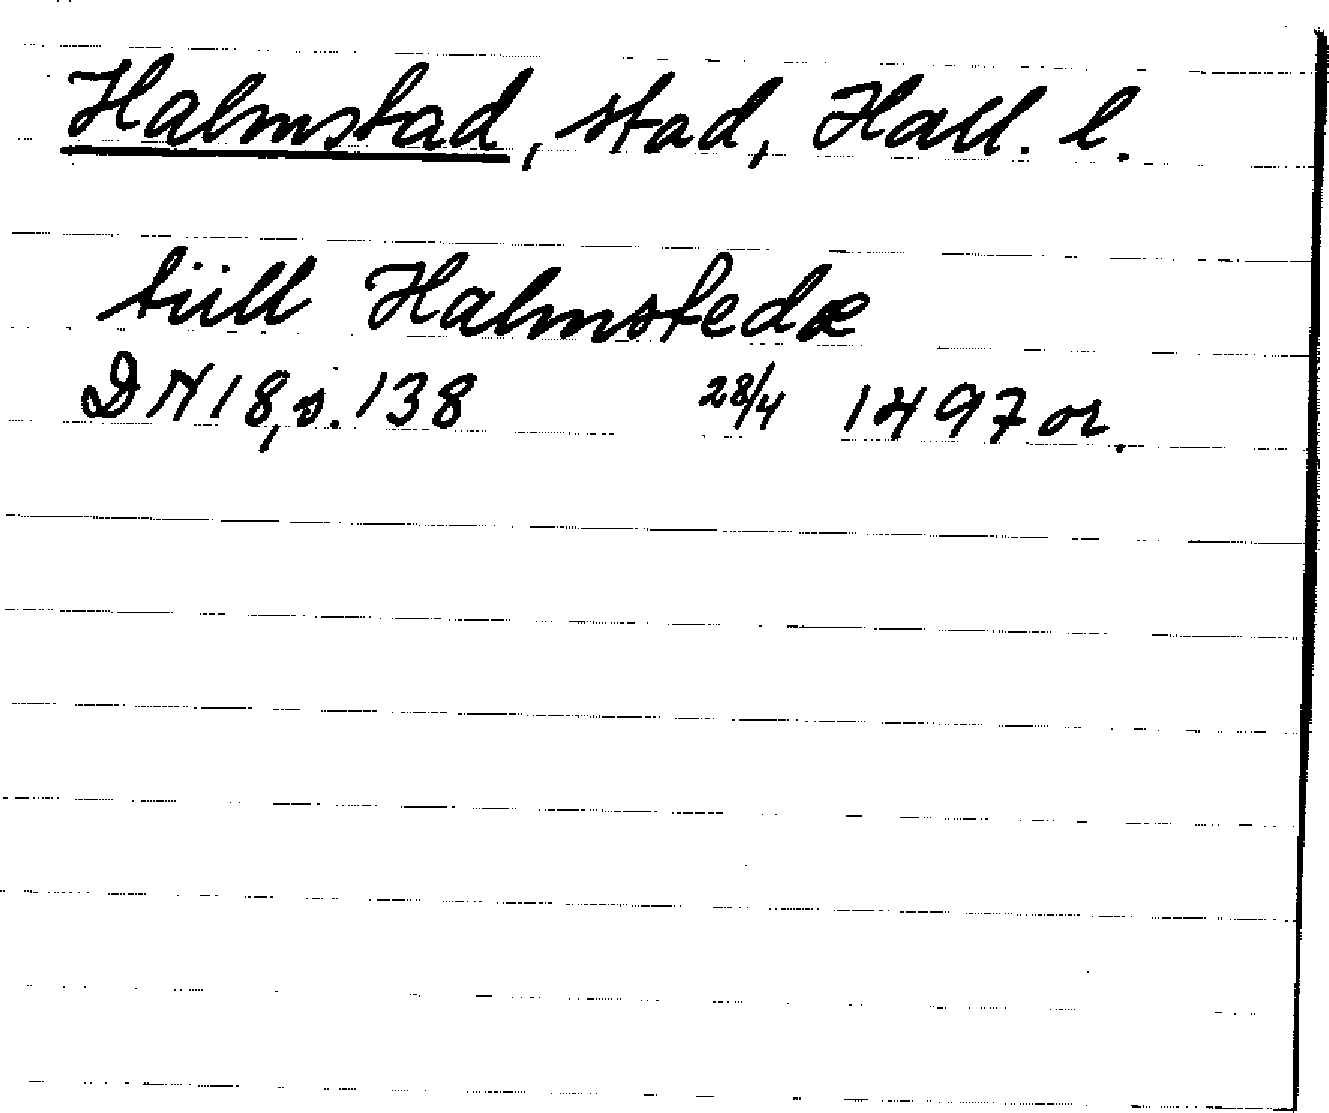 Halmstad, stad, Hall. l.
tiill Halmstedæ
DN 18, s. 138 28/4 1497 or.